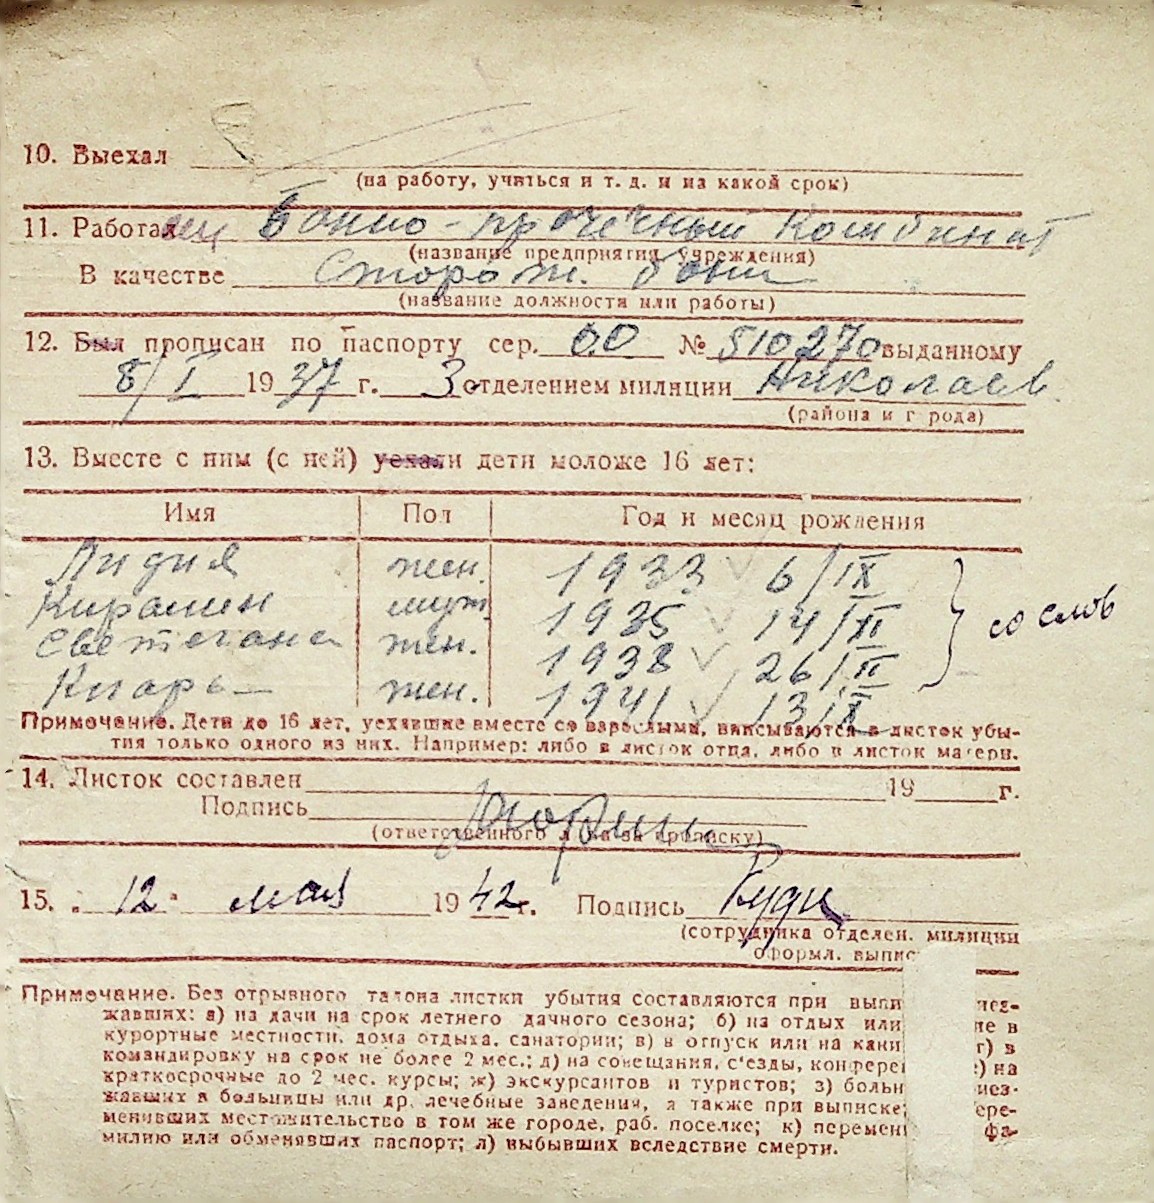 10. Выехал
(на работу, учиться и т. д. и на какой срок)
11. Работа Банно-прачечный Комбинат
(название предприятия, учреждения)
В качестве Сторож. бани
(название должности или работы)
12. Был прописан по паспорту сер. № 510270 выданному
8/I 1937 г. 3 отделением милиции Николаев
(района и г рода)
13. Вместе с ним (с ней) уехали дети моложе 16 лет:
Имя Пол Год и месяц рождения
Лидия жен. 1933 6/IX
муж 1935 14/XI
Светлана жен. 1938 26/II со слов
жен. 1941 13/IX
Примечание. Дети до 16 лет, уехавшие вместе со взрослыми, вписываются в листок убы-
тия только одного из них. Например: либо в листок отца, либо в листок матери.
14. Листок составлен 19 г.
Подпись
(ответственного за прописку)
15. „12" мая 1942 г. Подпись
(сотрудника отделен. милиции
оформл. выпис
Примечание. Без отрывного талона листки убытия составляются при выпи иез-
жавших: а) на дачи на срок летнего дачного сезона; б) на отдых или ие в
курортные местности, дома отдыха, санатории; в) в отпуск или на кани г) в
командировку на срок не более 2 мес.; д) на совещания, с'езды, конфере ) на
краткосрочные до 2 мес. курсы; ж) экскурсантов и туристов; з) больн иез-
жавших в больницы или др. лечебные заведения, а также при выписке; ере-
менивших местожительство в том же городе, раб. поселке; к) перемени фа-
милию или обменявших паспорт; л) выбывших вследствие смерти.